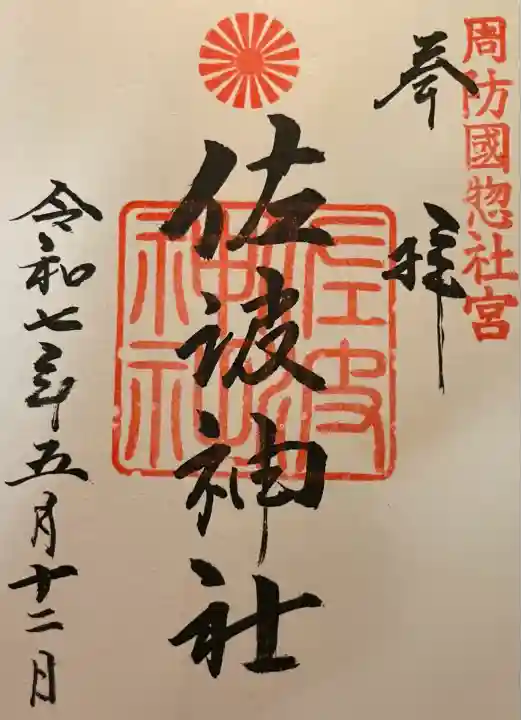 周防國惣社宮
奉拝
佐波神社
佐波神社
令和七年五月十二日